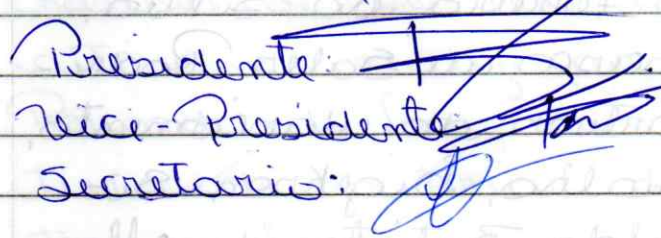 Presidente:
Vice-Presidente:
Secretario: